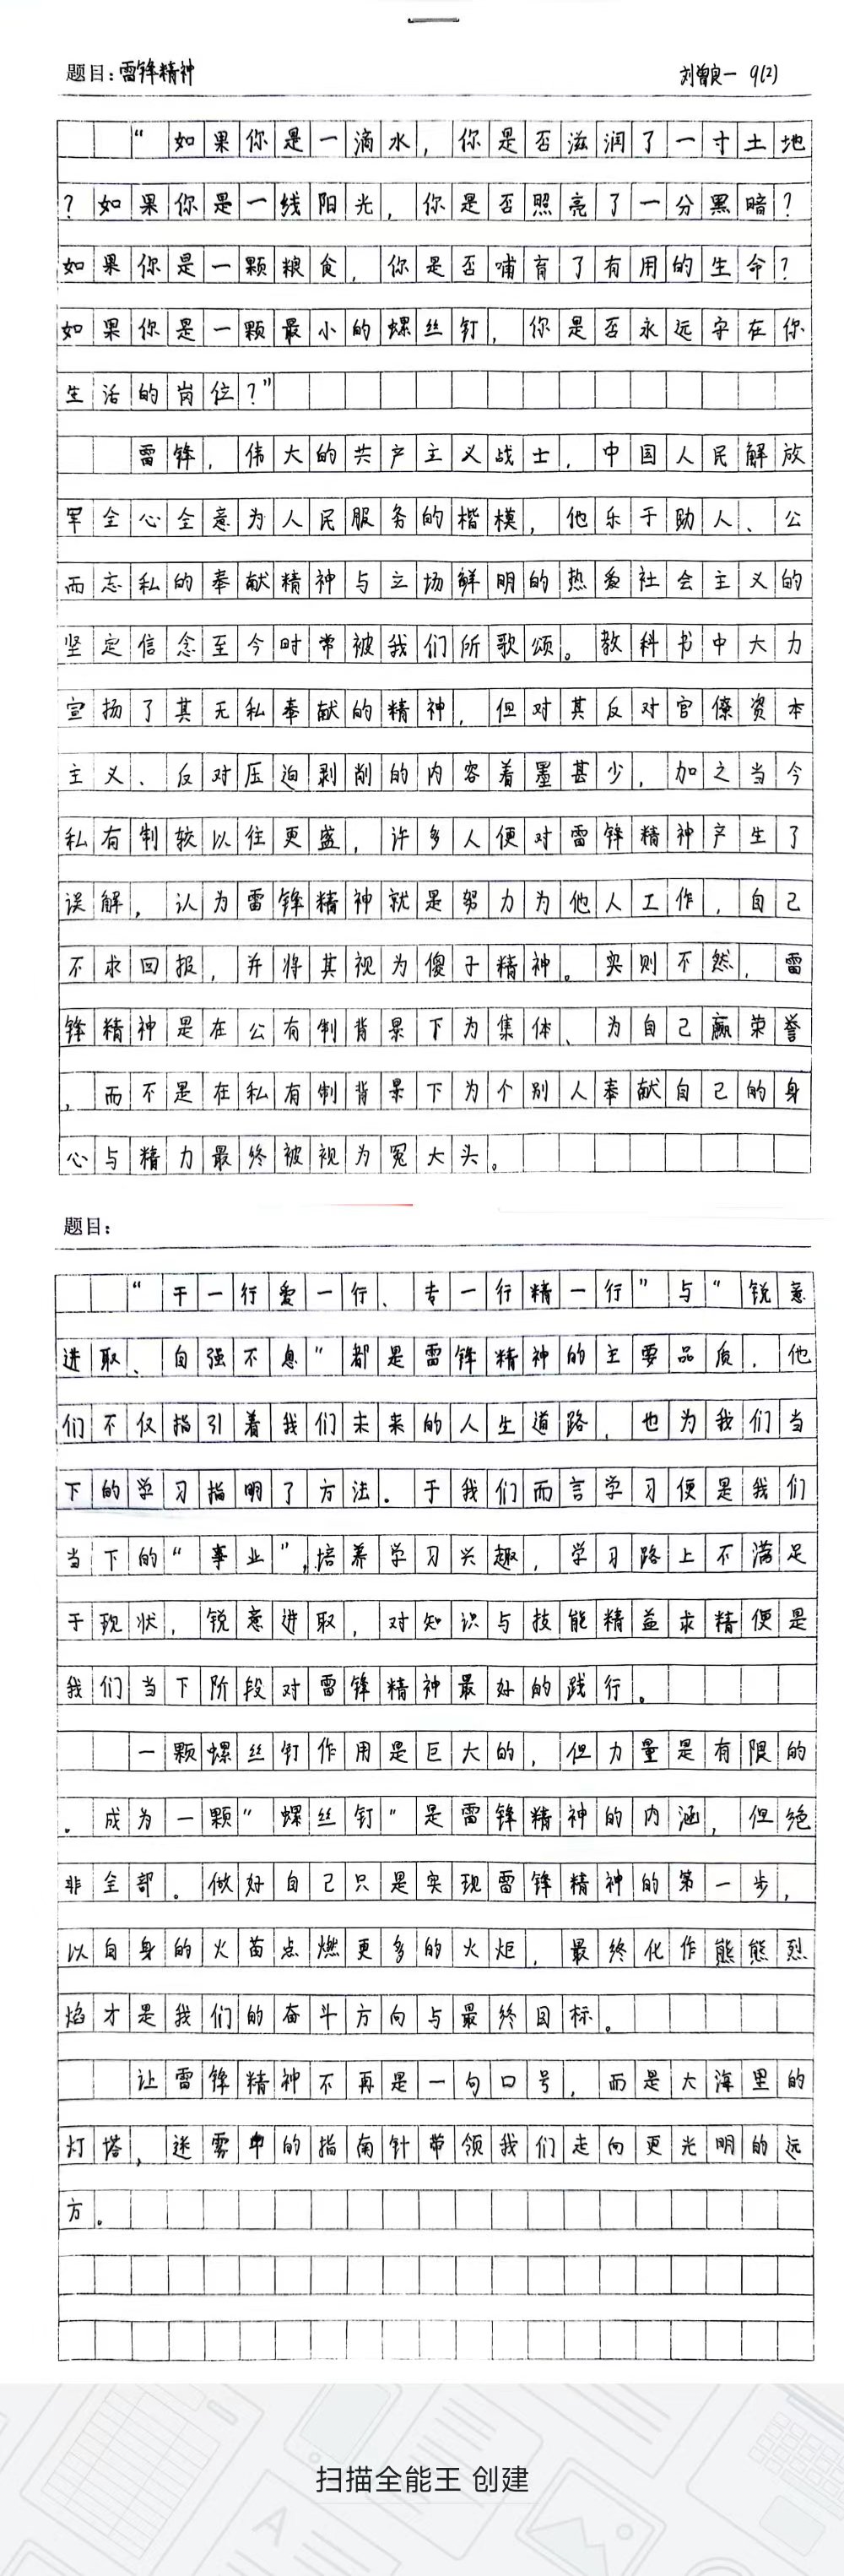 题目：雷锋精神 刘曾良一 9(2)
“如果你是一滴水，你是否滋润了一寸土地
？如果你是一线阳光，你是否照亮了一分黑暗？
如果你是一颗粮食，你是否哺育了有用的生命？
如果你是一颗最小的螺丝钉，你是否永远守在你
生活的岗位？”
雷锋，伟大的共产主义战士，中国人民解放
军全心全意为人民服务的楷模，他乐于助人、公
而忘私的奉献精神与立场鲜明的热爱社会主义的
坚定信念至今时常被我们所歌颂。教科书中大力
宣扬了其无私奉献的精神，但对其反对官僚资本
主义、反对压迫剥削的内容着墨甚少，加之当今
私有制较以往更盛，许多人便对雷锋精神产生了
误解，认为雷锋精神就是努力为他人工作，自己
不求回报，并将其视为傻子精神。实则不然，雷
锋精神是在公有制背景下为集体、为自己赢荣誉
，而不是在私有制背景下为个别人奉献自己的身
心与精力最终被视为冤大头。
题目：
“干一行爱一行、专一行精一行”与“锐意
进取、自强不息”都是雷锋精神的主要品质，他
们不仅指引着我们未来的人生道路，也为我们当
下的学习指明了方法。于我们而言学习便是我们
当下的“事业”，培养学习兴趣，学习路上不满足
于现状，锐意进取，对知识与技能精益求精便是
我们当下阶段对雷锋精神最好的践行。
一颗螺丝钉作用是巨大的，但力量是有限的
。成为一颗“螺丝钉”是雷锋精神的内涵，但绝
非全部。做好自己只是实现雷锋精神的第一步，
以自身的火苗点燃更多的火炬，最终化作熊熊烈
焰才是我们的奋斗方向与最终目标。
让雷锋精神不再是一句口号，而是大海里的
灯塔，迷雾中的指南针带领我们走向更光明的远
方。
扫描全能王 创建